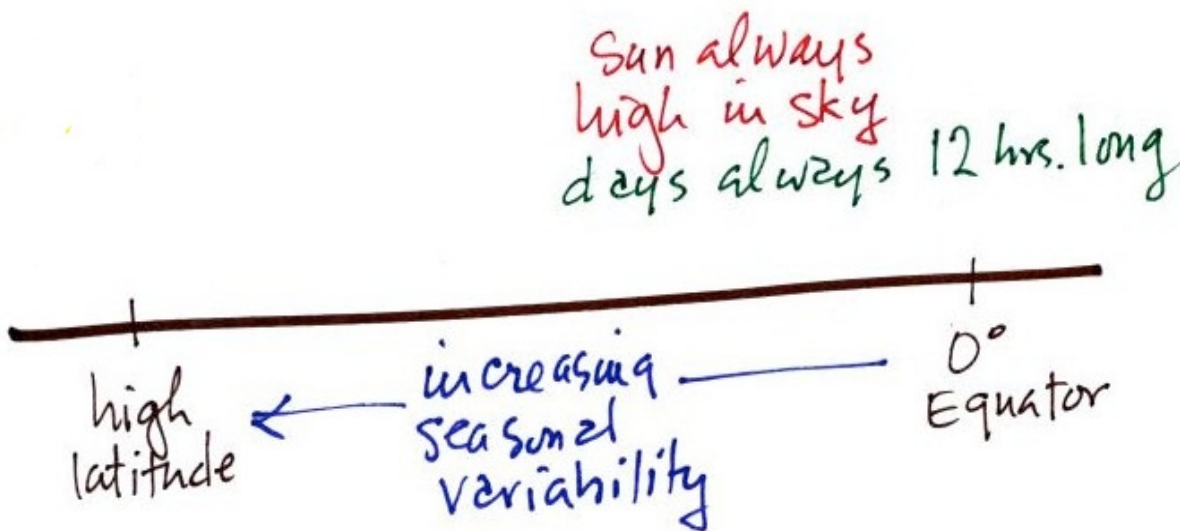 Sun always
high in sky
days always 12 hrs. long
high
latitude
increasing
seasonal
variability
0°
Equator